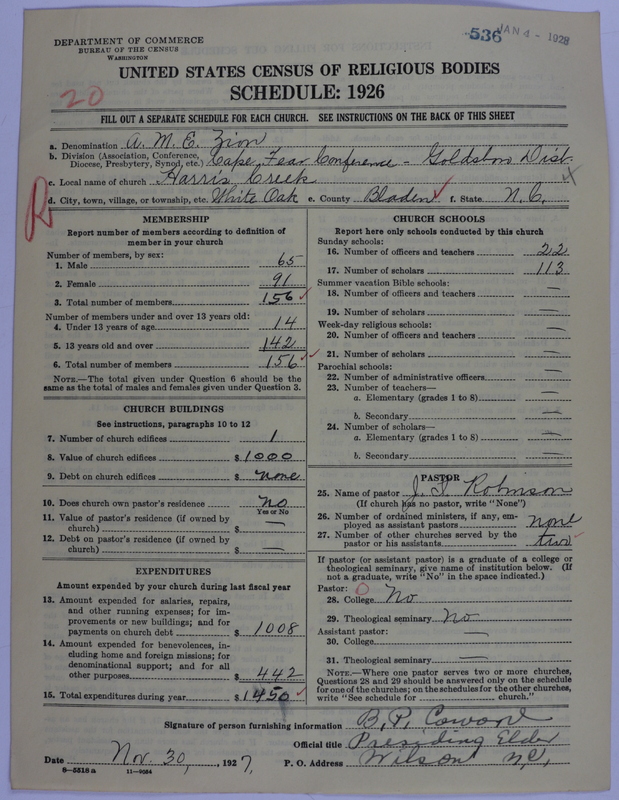 536
JAN 4 - 1928
DEPARTMENT OF COMMERCE
BUREAU OF THE CENSUS
WASHINGTON
UNITED STATES CENSUS OF RELIGIOUS BODIES
20
SCHEDULE: 1926
FILL OUT A SEPARATE SCHEDULE FOR EACH CHURCH. SEE INSTRUCTIONS ON THE BACK OF THIS SHEET
a. Denomination A. M. E. Zion
b. Division (Association, Conference, Diocese, Presbytery, Synod, etc.) Cape Fear Conference - Goldsboro Dist.
c. Local name of church Harris Creek
d. City, town, village, or township, etc. White Oak e. County Bladen f. State N. C.
R
MEMBERSHIP
Report number of members according to definition of
member in your church
Number of members, by sex:
1. Male 65
2. Female 91
3. Total number of members 156
Number of members under and over 13 years old:
4. Under 13 years of age 14
5. 13 years old and over 142
6. Total number of members 156
NOTE.—The total given under Question 6 should be the
same as the total of males and females given under Question 3.
CHURCH BUILDINGS
See instructions, paragraphs 10 to 12
7. Number of church edifices 1
8. Value of church edifices $ 1000
9. Debt on church edifices $ none
10. Does church own pastor's residence No
Yes or No
11. Value of pastor's residence (if owned by
church) $ —
12. Debt on pastor's residence (if owned by
church) $ —
EXPENDITURES
Amount expended by your church during last fiscal year
13. Amount expended for salaries, repairs,
and other running expenses; for im-
provements or new buildings; and for
payments on church debt $ 1008
14. Amount expended for benevolences, in-
cluding home and foreign missions; for
denominational support; and for all
other purposes $ 442
15. Total expenditures during year $ 1450
CHURCH SCHOOLS
Report here only schools conducted by this church
Sunday schools:
16. Number of officers and teachers 22
17. Number of scholars 113
Summer vacation Bible schools:
18. Number of officers and teachers —
19. Number of scholars —
Week-day religious schools:
20. Number of officers and teachers —
21. Number of scholars —
Parochial schools:
22. Number of administrative officers —
23. Number of teachers—
a. Elementary (grades 1 to 8) —
b. Secondary —
24. Number of scholars—
a. Elementary (grades 1 to 8) —
b. Secondary —
PASTOR
25. Name of pastor J. I. Robinson
(If church has no pastor, write "None")
26. Number of ordained ministers, if any, em-
ployed as assistant pastors none
27. Number of other churches served by the
pastor or his assistants two
If pastor (or assistant pastor) is a graduate of a college or
theological seminary, give name of institution below. (If
not a graduate, write "No" in the space indicated.)
Pastor: 0
28. College No
29. Theological seminary No
Assistant pastor: —
30. College
31. Theological seminary —
NOTE.—Where one pastor serves two or more churches,
Questions 28 and 29 should be answered only on the schedule
for one of the churches; on the schedules for the other churches,
write "See schedule for church."
Signature of person furnishing information B. P. Coward
Official title Presiding Elder
Date Nov. 30, 1927, P. O. Address Wilson N.C.
8-5518 a 11-9054